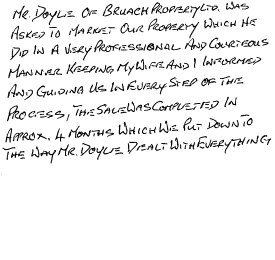 MR. DOYLE OF BRUACH PROPERTY LTD. WAS
ASKED TO MARKET OUR PROPERTY WHICH HE
DID IN A VERY PROFESSIONAL AND COURTEOUS
MANNER KEEPING MY WIFE AND I INFORMED
AND GUIDING US IN EVERY STEP OF THE
PROCESS, THE SALE WAS COMPLETED IN
APPROX. 4 MONTHS WHICH WE PUT DOWN TO
THE WAY MR. DOYLE DEALT WITH EVERYTHING